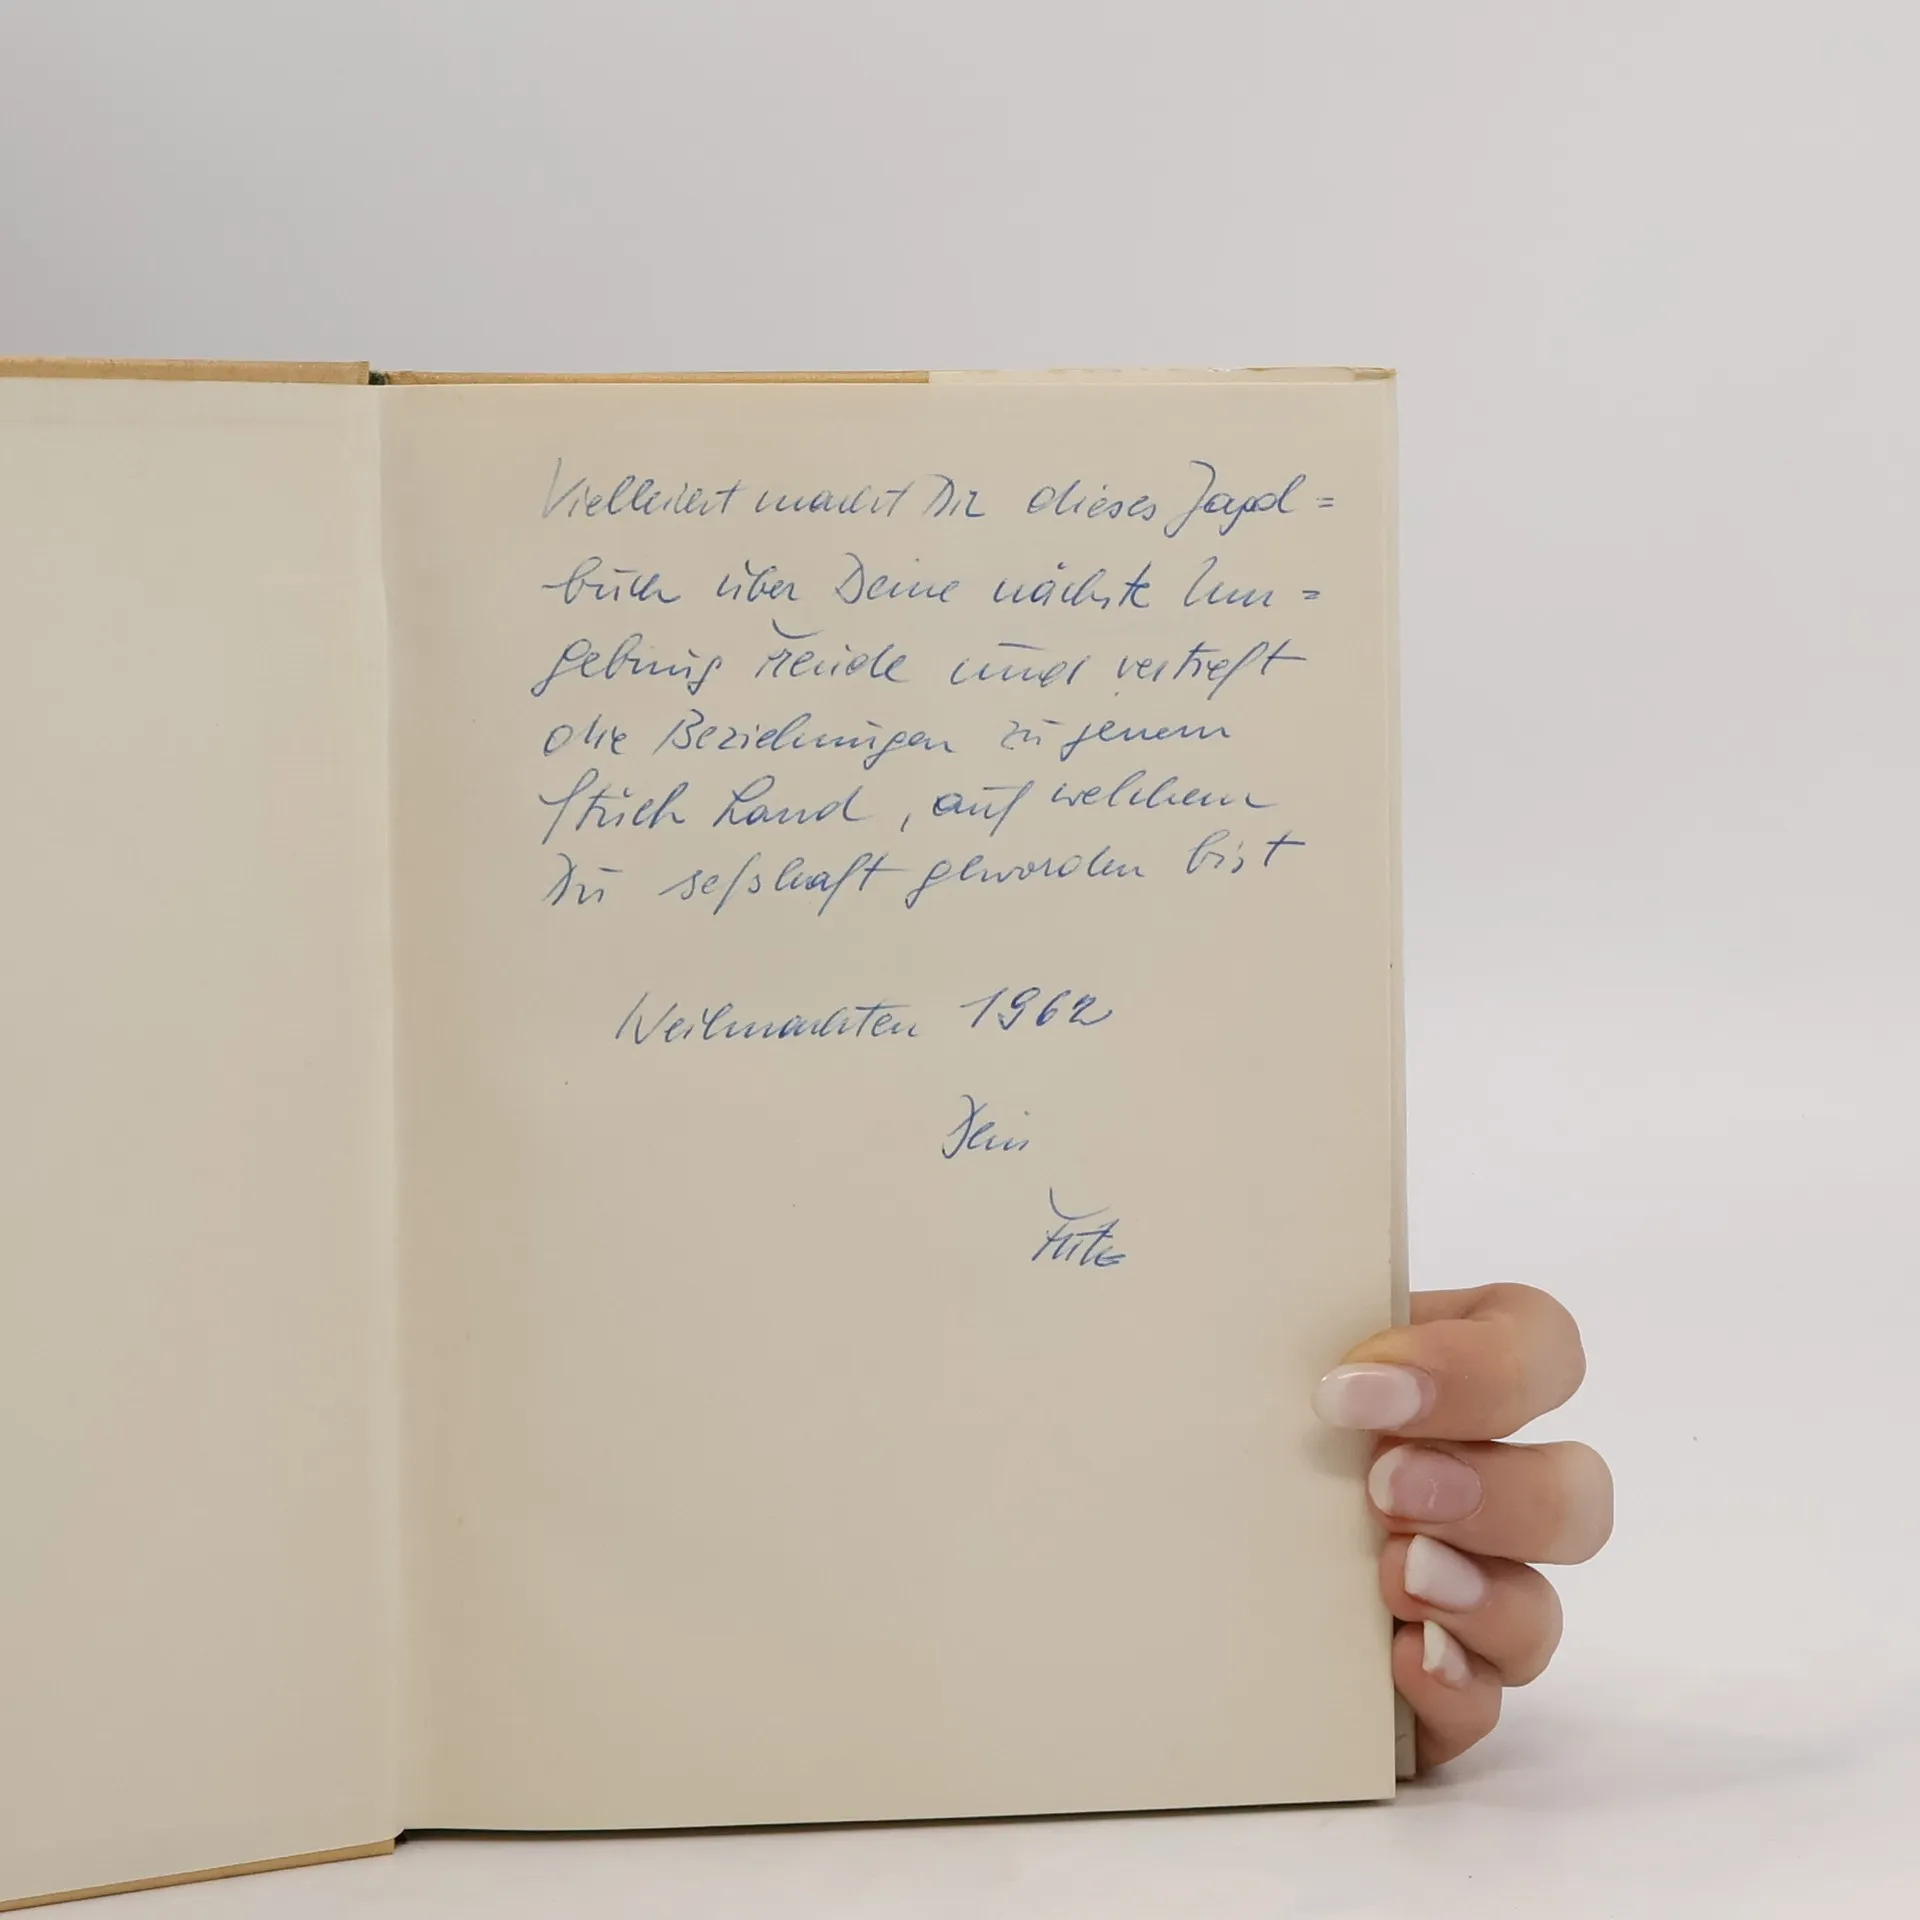 Vielleicht macht Dir dieses Jagd=
buch über Deine nächste Um=
gebung Freude und vertieft
die Beziehungen zu jenem
Stück Land, auf welchem
Du seßhaft geworden bist
Weihnachten 1962
Dein
Fritz